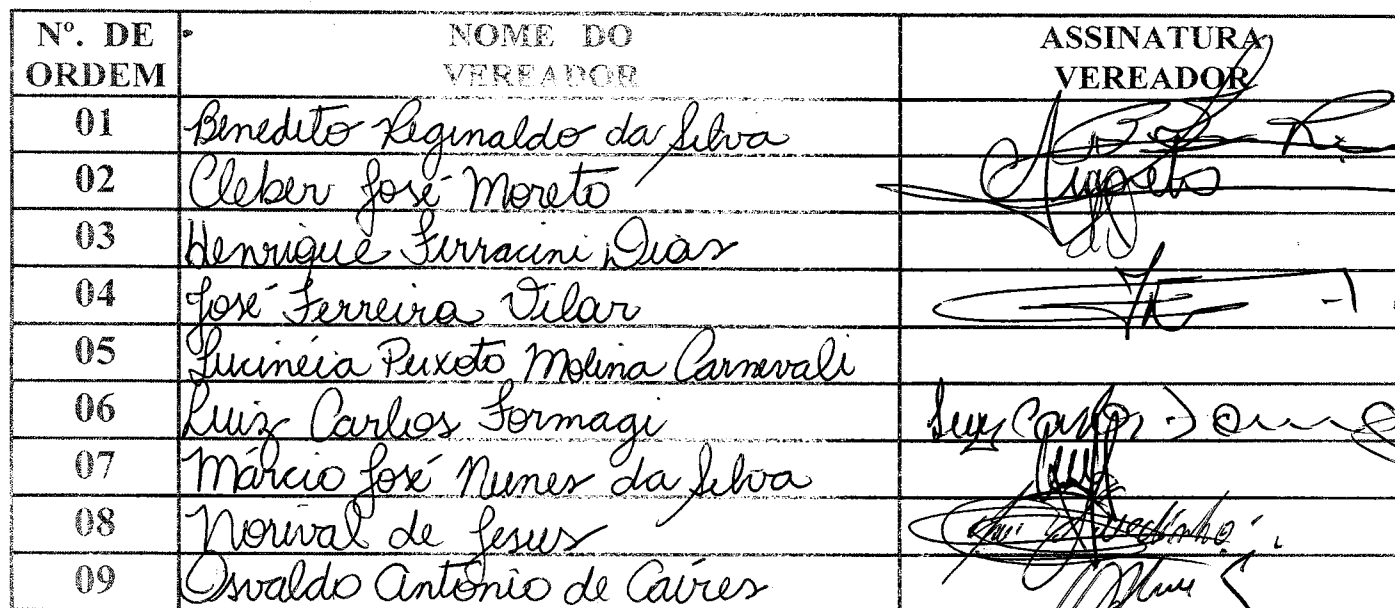 Nº. DE ORDEM NOME DO VEREADOR ASSINATURA VEREADOR
01 Benedito Reginaldo da Silva
02 Cleber José Moreto
03 Henrique Ferracini Dias
04 José Ferreira Vilar
05 Lucinéia Peixoto Molina Carnevali
06 Luiz Carlos Formagi Luiz Carlos
07 Márcio José Nunes da Silva
08 Norival de Jesus
09 Osvaldo Antônio de Caires